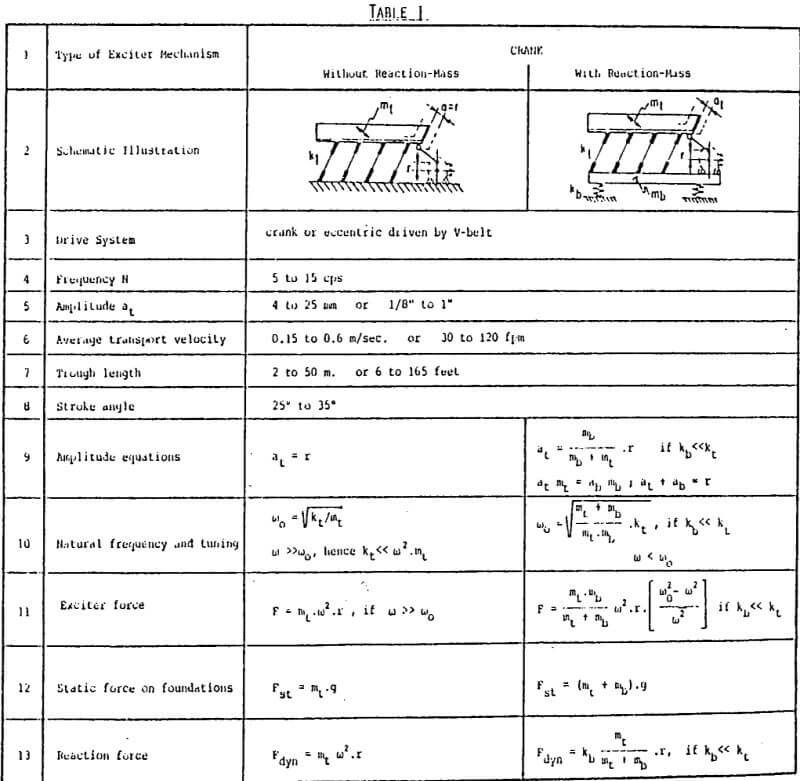 TABLE 1.
1 Type of Exciter Mechanism CRANK
Without Reaction-Mass With Reaction-Mass
2 Schematic Illustration
m_t a=r k_t r
m_t a_t k_t r k_b m_b
3 Drive System crank or eccentric driven by V-belt
4 Frequency N 5 to 15 cps
5 Amplitude a_t 4 to 25 mm or 1/8" to 1"
6 Average transport velocity 0.15 to 0.6 m/sec. or 30 to 120 fpm
7 Trough length 2 to 50 m. or 6 to 165 feet
8 Stroke angle 25° to 35°
9 Amplitude equations a_t = r a_t = m_b / (m_b + m_t) .r if k_b<<k_t
a_t m_t = a_b m_b ; a_t + a_b = r
10 Natural frequency and tuning ω_o = √(k_t/m_t) ω_o = √((m_t + m_b) / (m_t.m_b) .k_t) , if k_b<< k_t
ω >>ω_o, hence k_t<< ω².m_t ω < ω_o
11 Exciter force F = m_t.ω².r , if ω >> ω_o F = (m_t.m_b) / (m_t + m_b) ω².r.[(ω_o²- ω²) / ω²] if k_b<< k_t
12 Static force on foundations F_st = m_t.g F_st = (m_t + m_b).g
13 Reaction force F_dyn = m_t ω².r F_dyn = k_b m_t / (m_t + m_b) .r, if k_b<< k_t